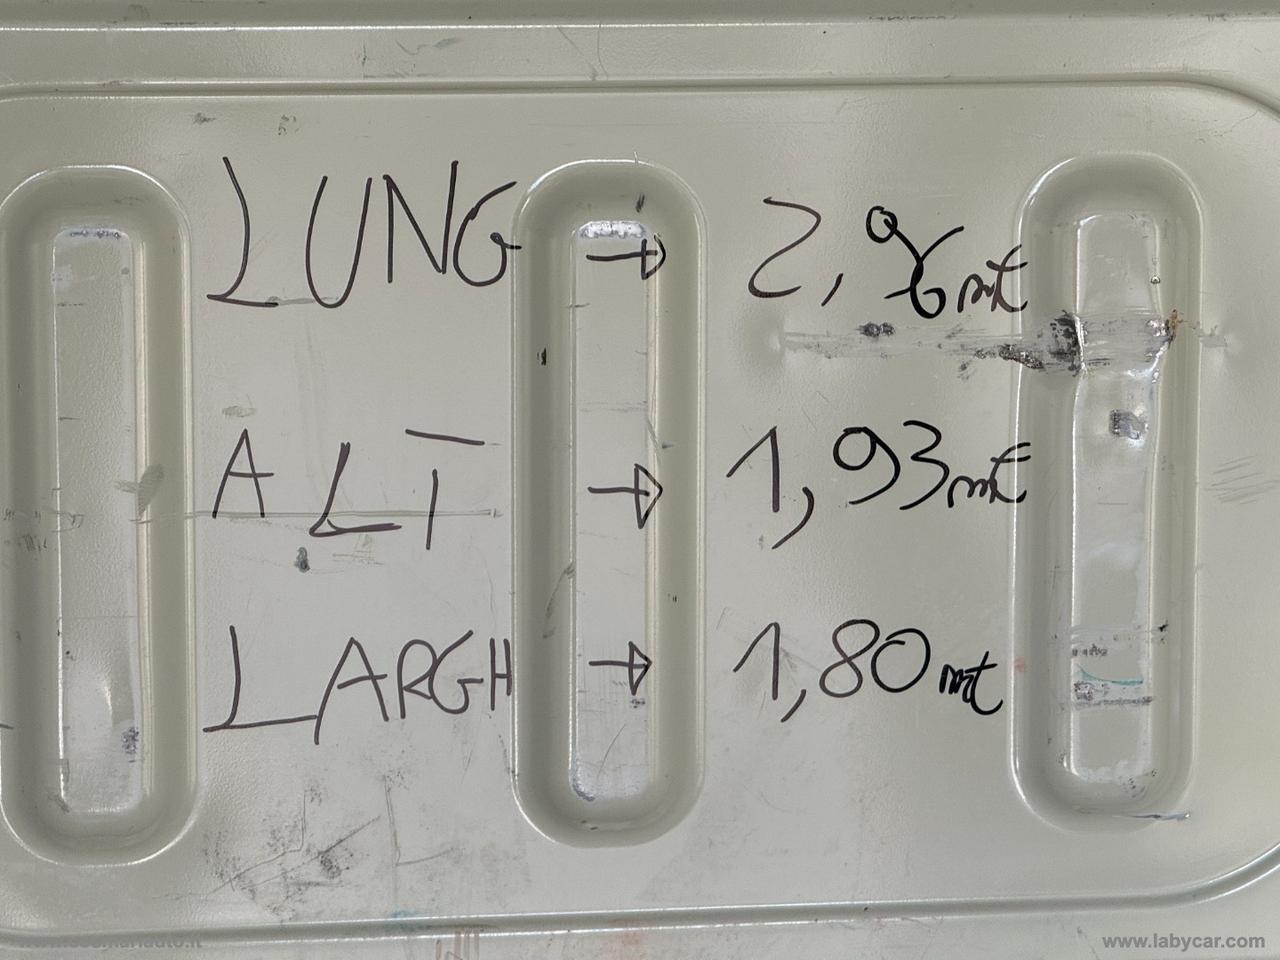 LUNG → 2,96mt
ALT → 1,93mt
LARGH → 1,80mt
www.labycar.com